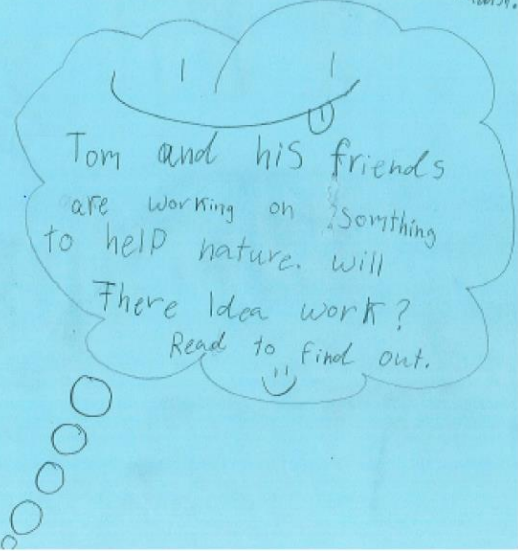 Tom and his friends
are working on somthing
to help nature. will
There Idea work?
Read to find out.